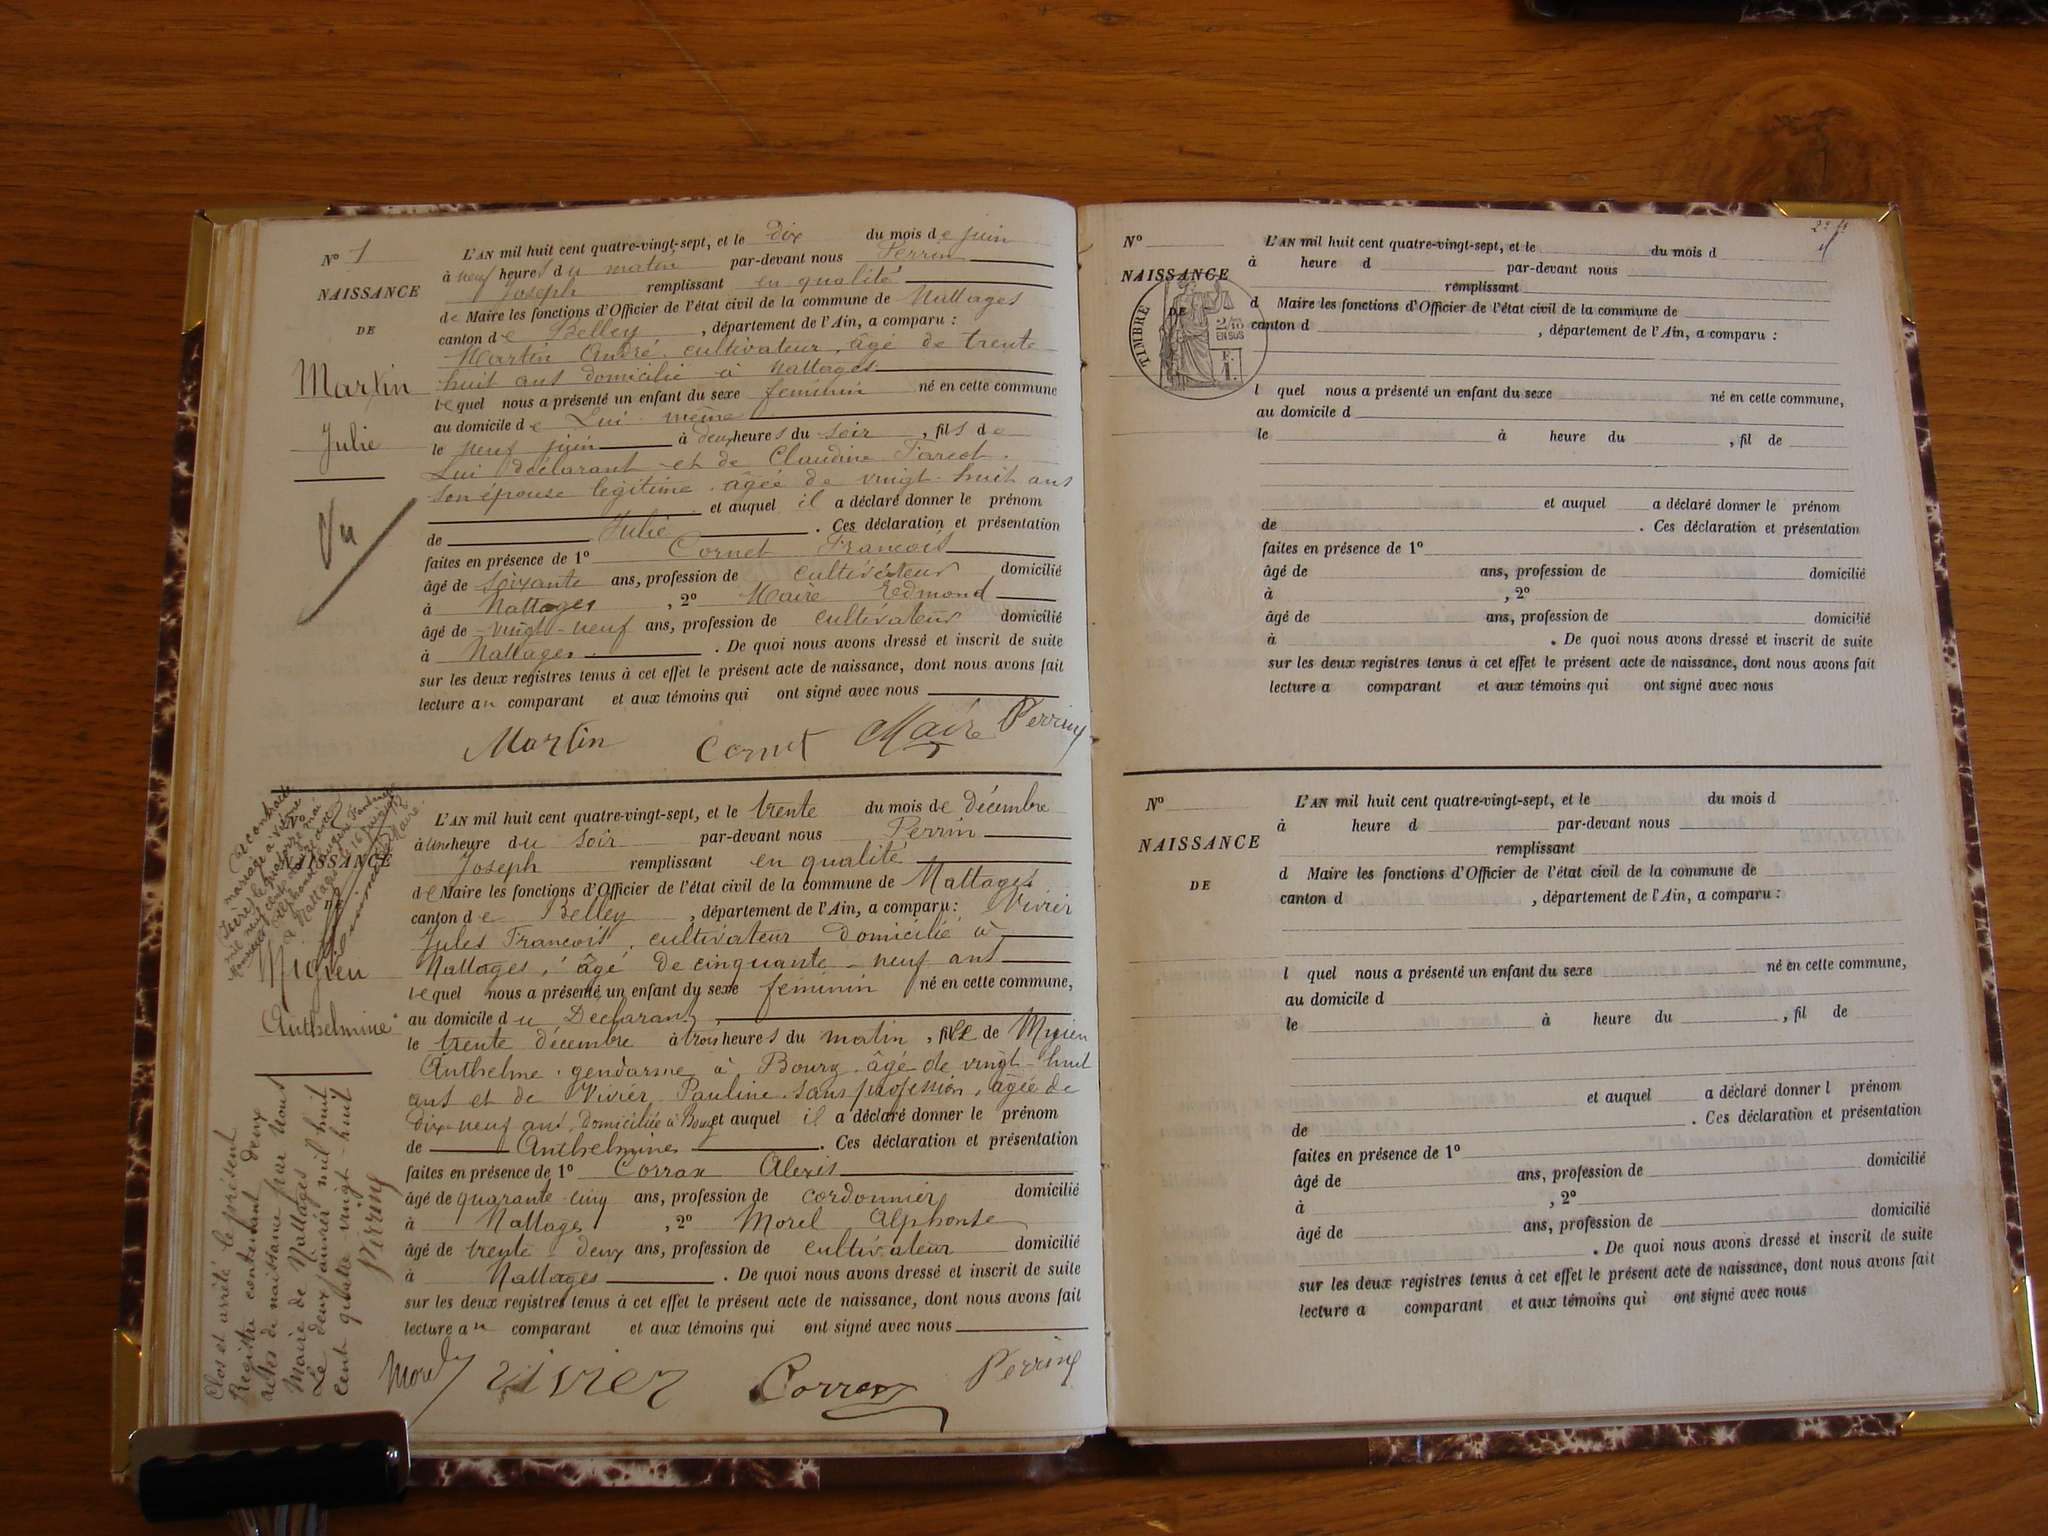 N° 1
NAISSANCE
DE
Martin
Julie
Vu
L'AN mil huit cent quatre-vingt-sept, et le Dix du mois de juin
à neuf heures du matin par-devant nous Perrin
Joseph remplissant en qualité
de Maire les fonctions d'Officier de l'état civil de la commune de Nattages
canton de Belley, département de l'Ain, a comparu :
Martin André, cultivateur, âgé de trente
huit ans domicilié à Nattages
lequel nous a présenté un enfant du sexe féminin né en cette commune
au domicile de Lui même
le neuf juin à deux heures du soir, fils de
Lui déclarant et de Claudine
son épouse légitime, âgée de vingt-huit ans
et auquel il a déclaré donner le prénom
de Julie. Ces déclaration et présentation
faites en présence de 1° Cornet François
âgé de soixante ans, profession de cultivateur domicilié
à Nattages, 2° Maire Edmond
âgé de vingt-neuf ans, profession de cultivateur domicilié
à Nattages. De quoi nous avons dressé et inscrit de suite
sur les deux registres tenus à cet effet le présent acte de naissance, dont nous avons fait
lecture au comparant et aux témoins qui ont signé avec nous
Martin Cornet Maire Perrin
A contracté
mariage à
Isère, le quatorze mai
mil neuf cent
avec
Alphonse
à Nattages le 16
Maire.
N°
NAISSANCE
DE
Migieu
Anthelmine
L'AN mil huit cent quatre-vingt-sept, et le trente du mois de décembre
à une heure du soir par-devant nous Perrin
Joseph remplissant en qualité
de Maire les fonctions d'Officier de l'état civil de la commune de Nattages
canton de Belley, département de l'Ain, a comparu : Vivier
Jules François, cultivateur domicilié à
Nattages, âgé de cinquante-neuf ans
lequel nous a présenté un enfant du sexe féminin né en cette commune,
au domicile du Déclarant
le trente décembre à trois heures du matin, fille de Migieu
Anthelme, gendarme à Bourg, âgé de vingt-huit
ans et de Vivier Pauline, sans profession, âgée de
dix-neuf ans, Domiciliée à Bourg et auquel il a déclaré donner le prénom
de Anthelmine. Ces déclaration et présentation
faites en présence de 1° Corrax Alexis
âgé de quarante-cinq ans, profession de cordonnier domicilié
à Nattages, 2° Morel Alphonse
âgé de trente-deux ans, profession de cultivateur domicilié
à Nattages. De quoi nous avons dressé et inscrit de suite
sur les deux registres tenus à cet effet le présent acte de naissance, dont nous avons fait
lecture au comparant et aux témoins qui ont signé avec nous
Morel Vivier Corrax Perrin
Clos et arrêté le présent
Registre contenant deux
actes de naissance par nous
Maire de Nattages
Le deux janvier mil huit
cent quatre-vingt-huit
Perrin
N°
NAISSANCE
DE
TIMBRE
2/10
EN SUS
L'AN mil huit cent quatre-vingt-sept, et le du mois d
à heure d par-devant nous
remplissant
d Maire les fonctions d'Officier de l'état civil de la commune de
canton d , département de l'Ain, a comparu :
l quel nous a présenté un enfant du sexe né en cette commune,
au domicile d
le à heure du , fil de
et auquel a déclaré donner le prénom
de . Ces déclaration et présentation
faites en présence de 1°
âgé de ans, profession de domicilié
à , 2°
âgé de ans, profession de domicilié
à . De quoi nous avons dressé et inscrit de suite
sur les deux registres tenus à cet effet le présent acte de naissance, dont nous avons fait
lecture a comparant et aux témoins qui ont signé avec nous
N°
NAISSANCE
DE
L'AN mil huit cent quatre-vingt-sept, et le du mois d
à heure d par-devant nous
remplissant
d Maire les fonctions d'Officier de l'état civil de la commune de
canton d , département de l'Ain, a comparu :
l quel nous a présenté un enfant du sexe né en cette commune,
au domicile d
le à heure du , fil de
et auquel a déclaré donner l prénom
de . Ces déclaration et présentation
faites en présence de 1°
âgé de ans, profession de domicilié
à , 2°
âgé de ans, profession de domicilié
. De quoi nous avons dressé et inscrit de suite
sur les deux registres tenus à cet effet le présent acte de naissance, dont nous avons fait
lecture a comparant et aux témoins qui ont signé avec nous